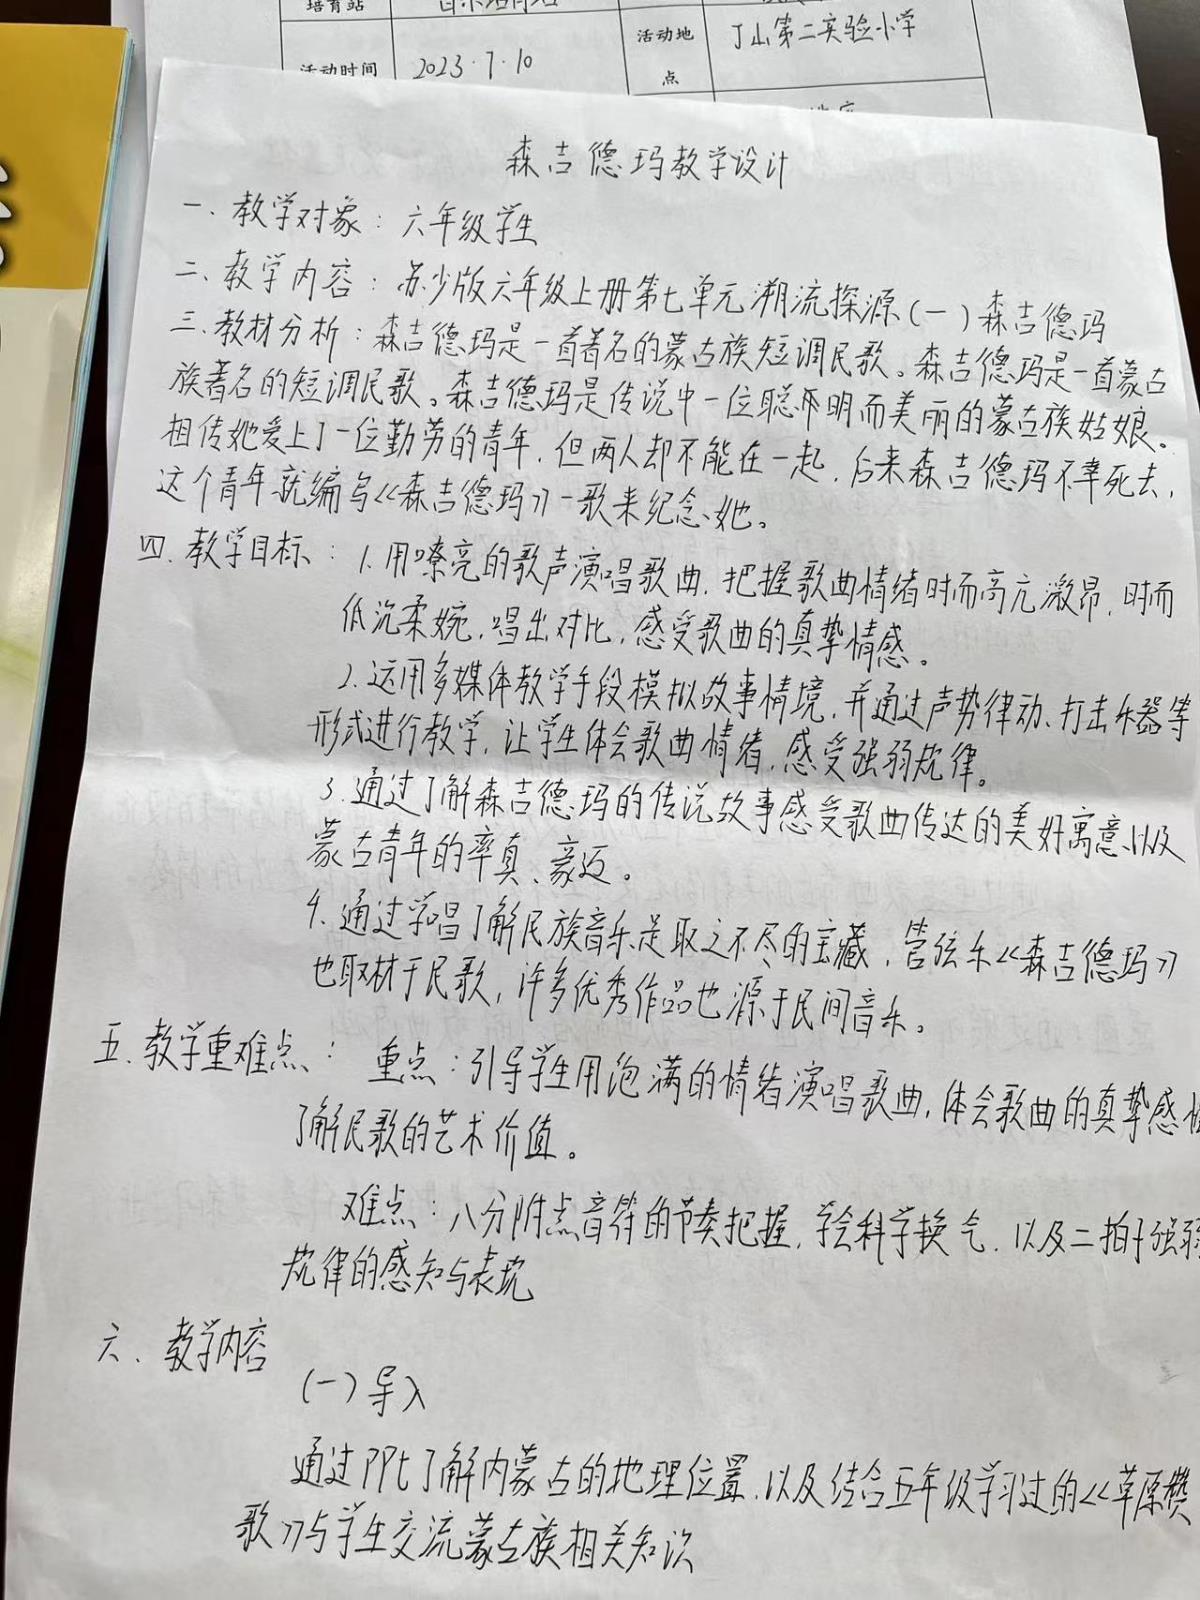 培育站
活动时间
2023.7.10
活动地
点
丁山第二实验小学
森吉德玛教学设计
一、教学对象：六年级学生
二、教学内容：苏少版六年级上册第七单元溯流探源(一)森吉德玛
三、教材分析：森吉德玛是一首著名的蒙古族短调民歌。森吉德玛是一首蒙古
族著名的短调民歌。森吉德玛是传说中一位聪明而美丽的蒙古族姑娘。
相传她爱上了一位勤劳的青年，但两人却不能在一起，后来森吉德玛不幸死去，
这个青年就编写《森吉德玛》一歌来纪念她。
四、教学目标：1.用嘹亮的歌声演唱歌曲，把握歌曲情绪时而高亢激昂，时而
低沉柔婉，唱出对比，感受歌曲的真挚情感。
2.运用多媒体教学手段模拟故事情境，并通过声势律动、打击乐器等
形式进行教学，让学生体会歌曲情绪，感受强弱规律。
3.通过了解森吉德玛的传说故事感受歌曲传达的美好寓意以及
蒙古青年的率真、豪迈。
4.通过学唱了解民族音乐是取之不尽的宝藏，管弦乐《森吉德玛》
也取材于民歌，许多优秀作品也源于民间音乐。
五、教学重难点：重点：引导学生用饱满的情绪演唱歌曲，体会歌曲的真挚感情
了解民歌的艺术价值。
难点：八分附点音符的节奏把握，学会科学换气，以及二拍子强弱
规律的感知与表现
六、教学内容
(一)导入
通过PPt了解内蒙古的地理位置，以及结合五年级学习过的《草原赞
歌》与学生交流蒙古族相关知识